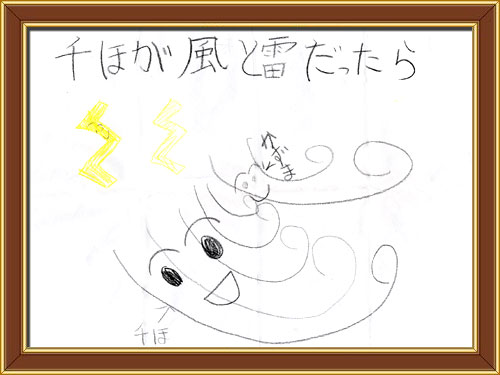 千ほが風と雷だったら
千ほ